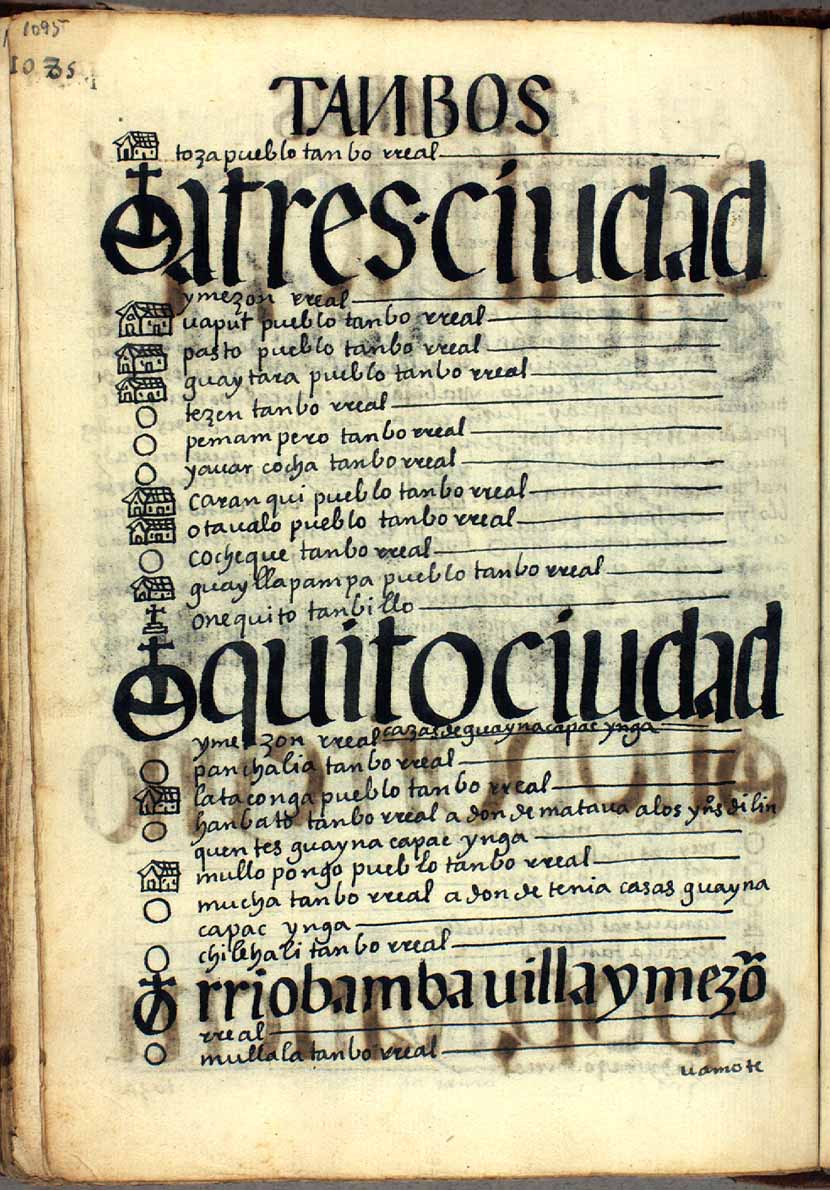 1095
TANBOS
toza pueblo tanbo rreal
atres·ciudad
ymezon rreal
pasto pueblo tanbo rreal
guaytara pueblo tanbo rreal
tezen tanbo rreal
pemampero tanbo rreal
yauar cocha tanbo rreal
caranqui pueblo tanbo rreal
otaualo pueblo tanbo rreal
cocheque tanbo rreal
guayllapampa pueblo tanbo rreal
onequito tanbillo
quito ciudad
ymezon rreal cazas de guayna capac ynga
panchalia tanbo rreal
lataconga pueblo tanbo rreal
hanbato tanbo rreal a donde mataua a los yns dilin
quentes guayna capac ynga
mullo pongo pueblo tanbo rreal
mucha tanbo rreal a donde tenia casas guayna
capac ynga
chilehali tanbo rreal
rriobamba uilla y mezõ
rreal
mullala tanbo rreal
uamote